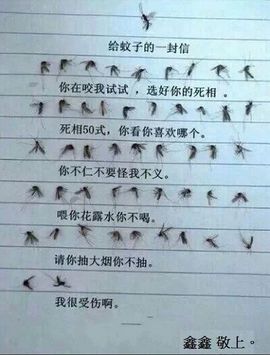 给蚊子的一封信
你在咬我试试，选好你的死相。
死相50式，你看你喜欢哪个。
你不仁不要怪我不义。
喂你花露水你不喝。
请你抽大烟你不抽。
我很受伤啊。
鑫鑫 敬上。